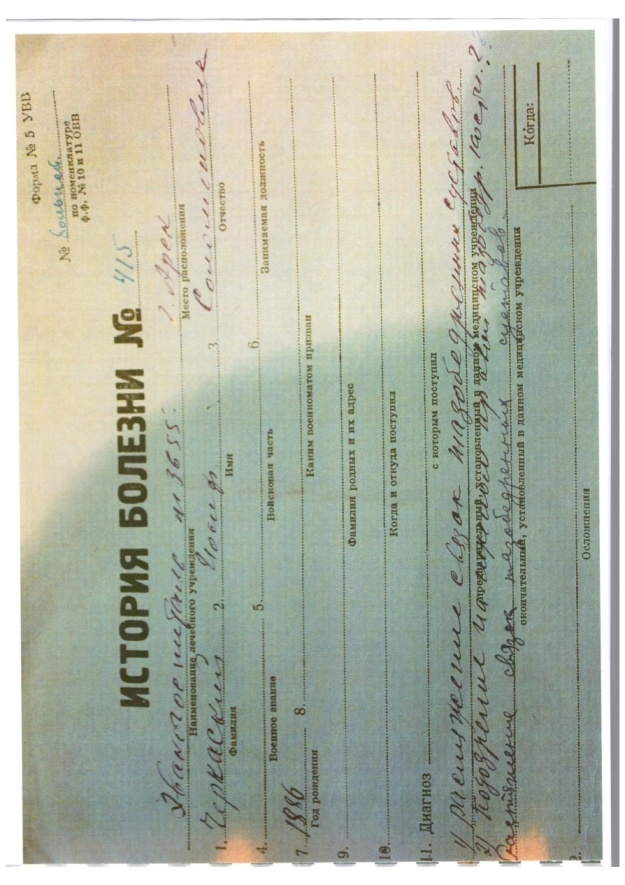 Форма № 5 УВВ
№ больнов.
по номенклатуре
ф.ф. № 10 и 11 ОВВ
ИСТОРИЯ БОЛЕЗНИ № 415
Эвакогоспиталь № 3655. г.
Наименование лечебного учреждения Место расположения
1. Черкаский 2. Иосиф 3. Соломонович
Фамилия Имя Отчество
4. 5. 6.
Военное звание Войсковая часть Занимаемая должность
7. 1886 8.
Год рождения Каким военкоматом призван
9.
Фамилия родных и их адрес
10.
Когда и откуда поступил
11. Диагноз
с которым поступил
1) растяжение связок тазобедренных суставов
предварительный, установленный в данном медицинском учреждении
2) Подозрение на тазобедр. кости.?
Растяжение связок тазобедренных суставов
окончательный, установленный в данном медицинском учреждении
Когда:
Осложнения